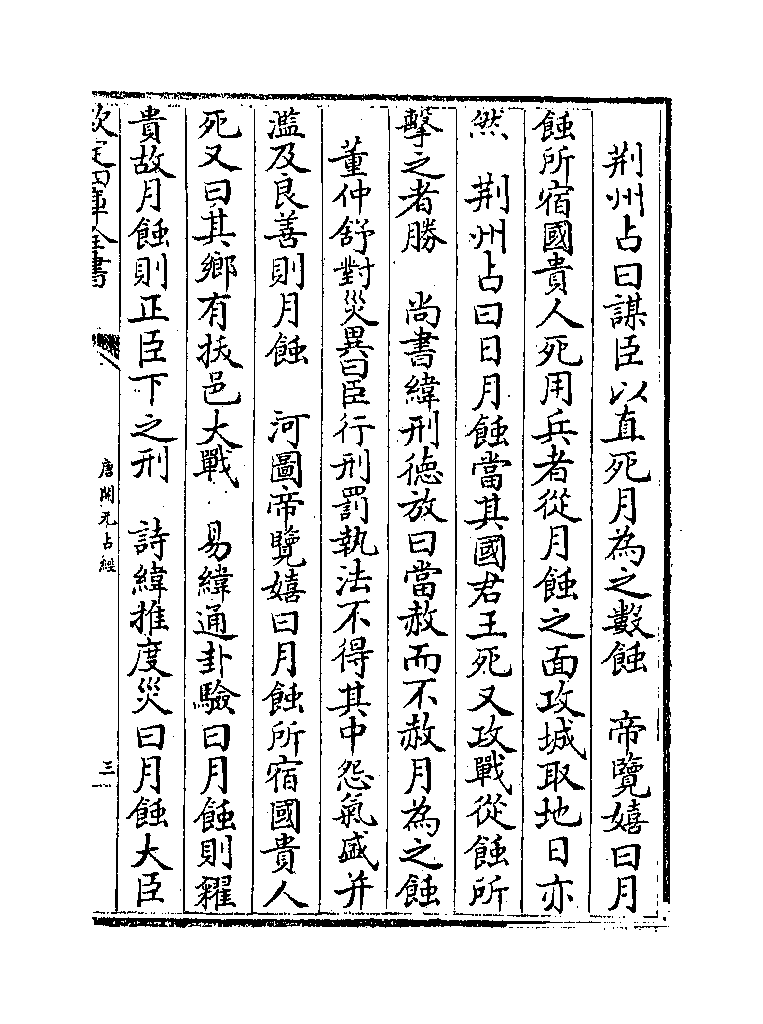 荆州占曰謀臣以直死月為之數蝕　帝覽嬉曰月
蝕所宿國貴人死用兵者從月蝕之面攻城取地日亦
然　荆州占曰日月蝕當其國君王死又攻戰從蝕所
擊之者勝　尚書緯刑德放曰當赦而不赦月為之蝕
董仲舒對災異曰臣行刑罰執法不得其中怨氣盛并
濫及良善則月蝕　河圖帝覽嬉曰月蝕所宿國貴人
死又曰其鄉有拔邑大戰　易緯通卦驗曰月蝕則糴
貴故月蝕則正臣下之刑　詩緯推度災曰月蝕大臣
欽定四庫全書
唐開元占經
三